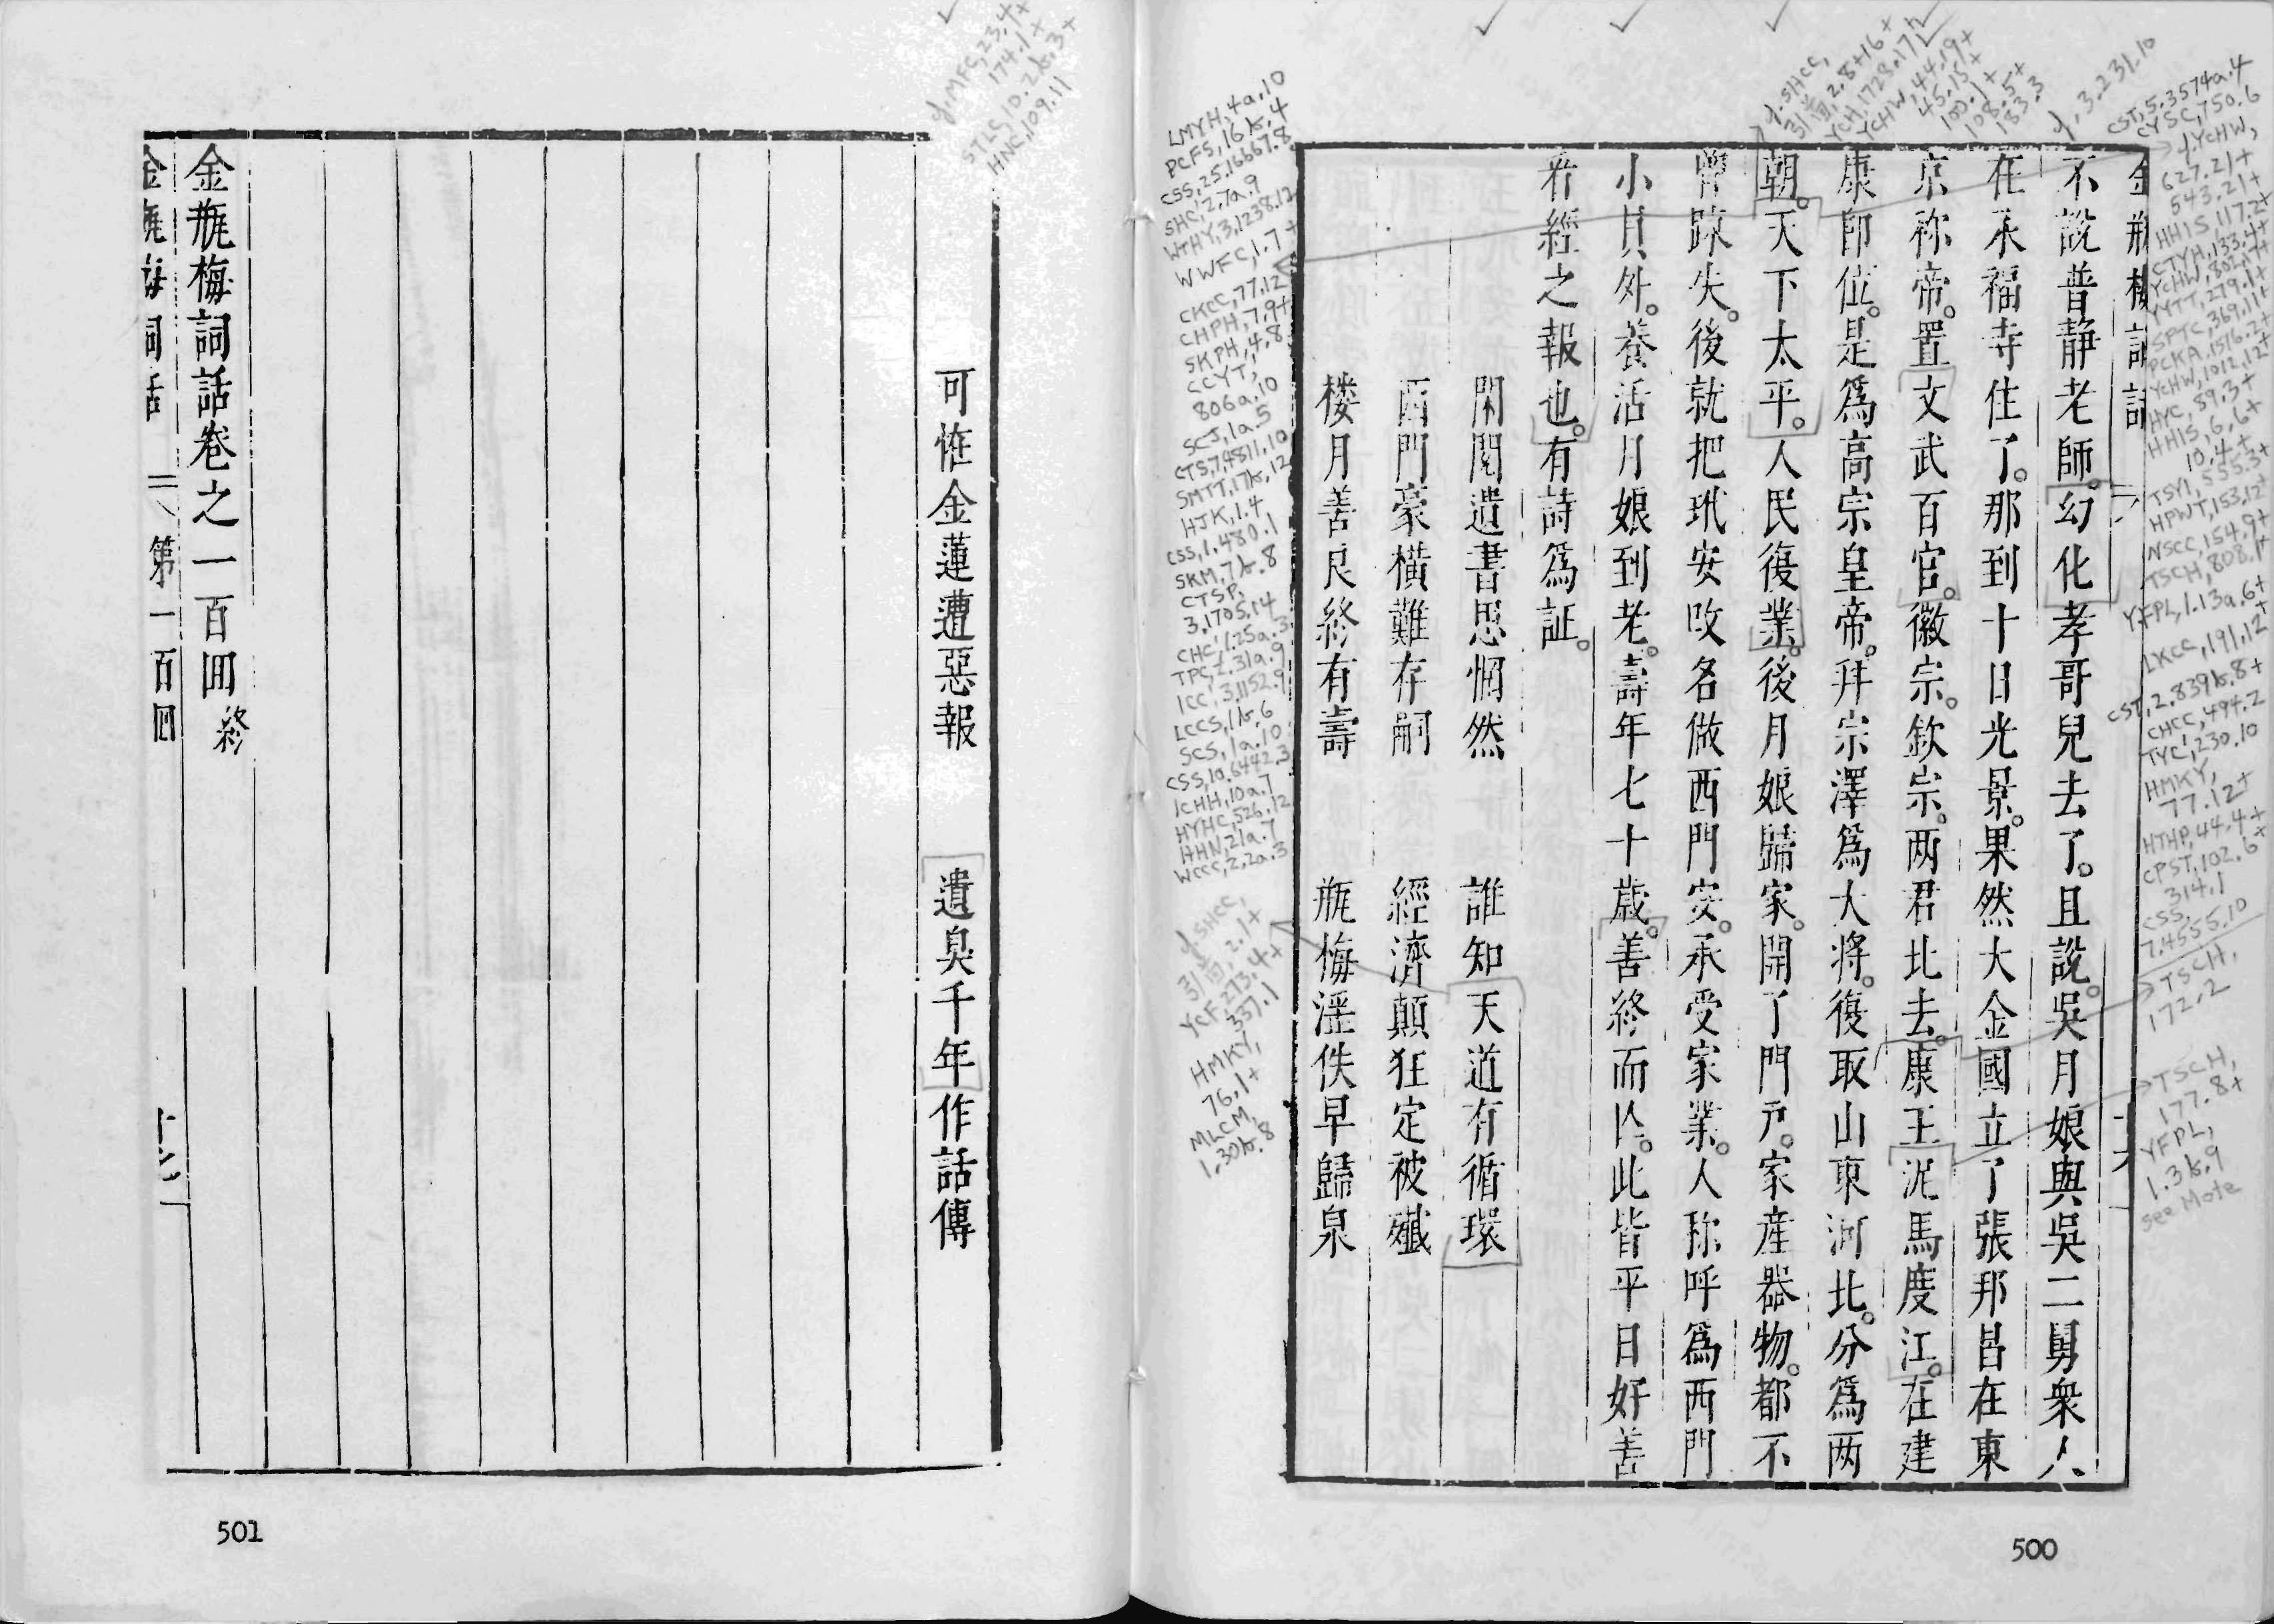 金瓶梅詞話
不說普靜老師。幻化孝哥兒去了。且說。吳月娘與吳二舅衆人
在永福寺住了。那到十日光景。果然大金國立了張邦昌在東
京称帝。置文武百官。徽宗。欽宗。两君北去。康王泥馬度江。在建
康即位。是爲高宗皇帝。拜宗澤爲大將。復取山東河北。分爲两
朝。天下太平。人民復業。後月娘歸家。開了門戶。家產器物。都不
曾踈失。後就把玳安改名做西門安。承受家業。人称呼爲西門
小員外。養活月娘到老。壽年七十歲。善終而亡。此皆平日好善
看經之報也。有詩爲証。
閑閱遺書思惘然 誰知天道有循環
西門豪橫難存嗣 經濟顛狂定被殲
楼月善良終有壽 瓶梅淫佚早歸泉
可恠金蓮遭惡報 遺臭千年作話傳
金瓶梅詞話卷之一百回終
金瓶梅詞話 第一百回
LMYH, 4a.10
PCFS, 16b.4
CSS, 25.16667.8
SHC, 2.7a.9
WTHY, 3.1238.12
WWFC, 1.7+
CKCC, 77.12
CHPH, 7.9+
SKPH, 4.8
CCYT,
806a.10
SCJ, 1a.5
CTS, 7.4811.10
SMTT, 17b.12
HJK, 1.4
CSS, 1.480.1
SKM, 7b.8
CTSP,
3.1705.14
CHC, 1.25a.3
TPC, 2.31a.9
ICC, 3.1152.9
LCCS, 1b.6
SCS, 1a.10
CSS, 10.6442.3
ICHH, 10a.7
HYHC, 526.12
HHN, 21a.7
WCCS, 2.2a.3
y.SHCC,
引首, 2.1+
YCF, 273.4+
337.1
HMKY,
76.1+
MLCM,
1.30b.8
y.MFC, 23.4+
174.1+
STLS, 10.2b.3+
HNC, 109.11
y.SHCC,
引首, 2.8+16+
YCH, 1728.17+
YCHW, 44.19+
45.15+
100.1+
108.5+
183.3
y.3.231.10
CST, 5.3574a.4
CYSC, 750.6
y.YCHW,
627.21+
543.21+
HHIS, 117.2+
CTYH, 133.4+
YCHW, 802.17+
YYTT, 279.1+
SPTC, 369.11+
PCKA, 1516.2+
YCHW, 1012.12+
HYC, 89.3+
HHIS, 6.6+
10.4+
TSYI, 555.3+
HPWT, 153.12+
NSCC, 154.9+
TSCH, 808.1+
YFPL, 1.13a.6+
LKCC, 191.12
CST, 2.839b.8+
CHCC, 494.2
TYC, 230.10
HMKY,
77.12+
HTHP, 44.4+
CPST, 102.6+
314.1
CSS,
7.4555.10
TSCH,
172.2
TSCH,
177.8+
YFPL,
1.3b.9
see Mote
501
500